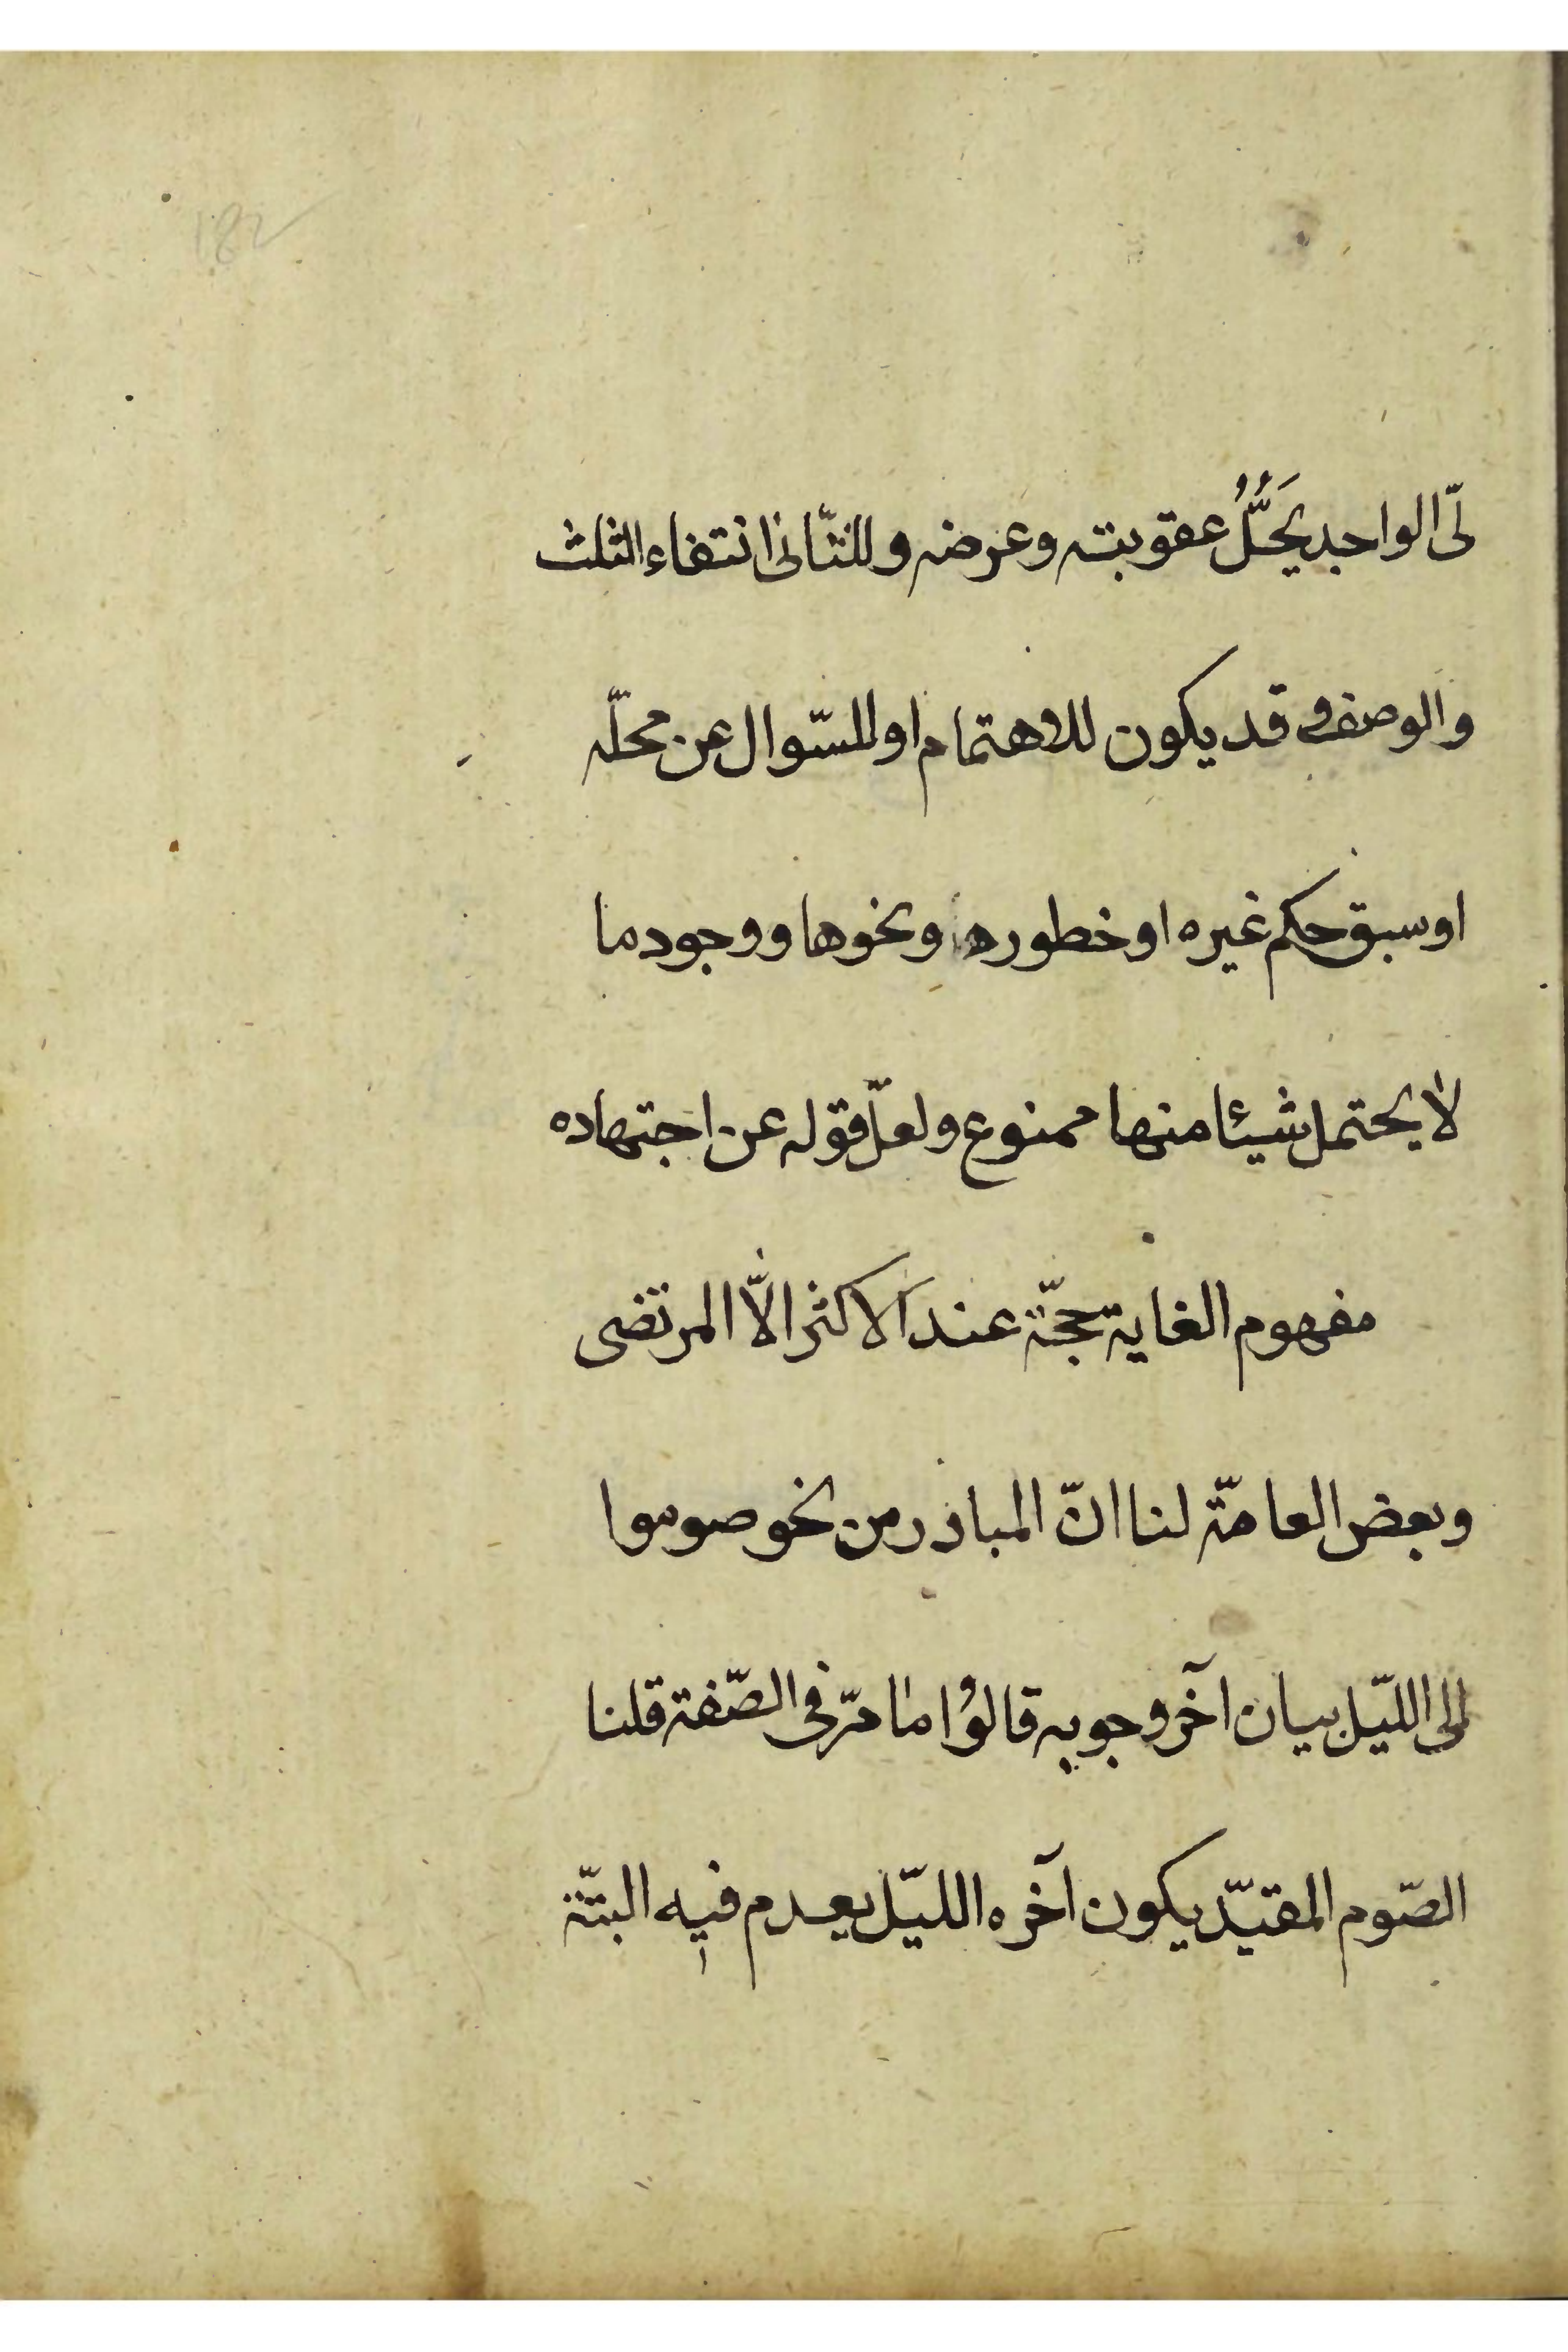 182
لىّ الواجد يَحلُّ عقوبته وعرضه وللثّانى انتفاء الثلث
والوصف قد يكون للاهتمام او للسّوال عن محلّه
او سبق حكم غيره او خطوره ونحوها ووجود ما
لا يحتمل شيئا منها ممنوع ولعلّ قوله عن اجتهاده
مفهوم الغاية حجّة عند الاكثر الّا المرتضى
وبعض العامّة لنا انّ المباذر من نحو صوموا
الى اللّيل بيان آخر وجوبه قالوا ما مرّ فى الصّفة قلنا
الصّوم المقيّد بكون آخره اللّيل يعدم فيه البتّة